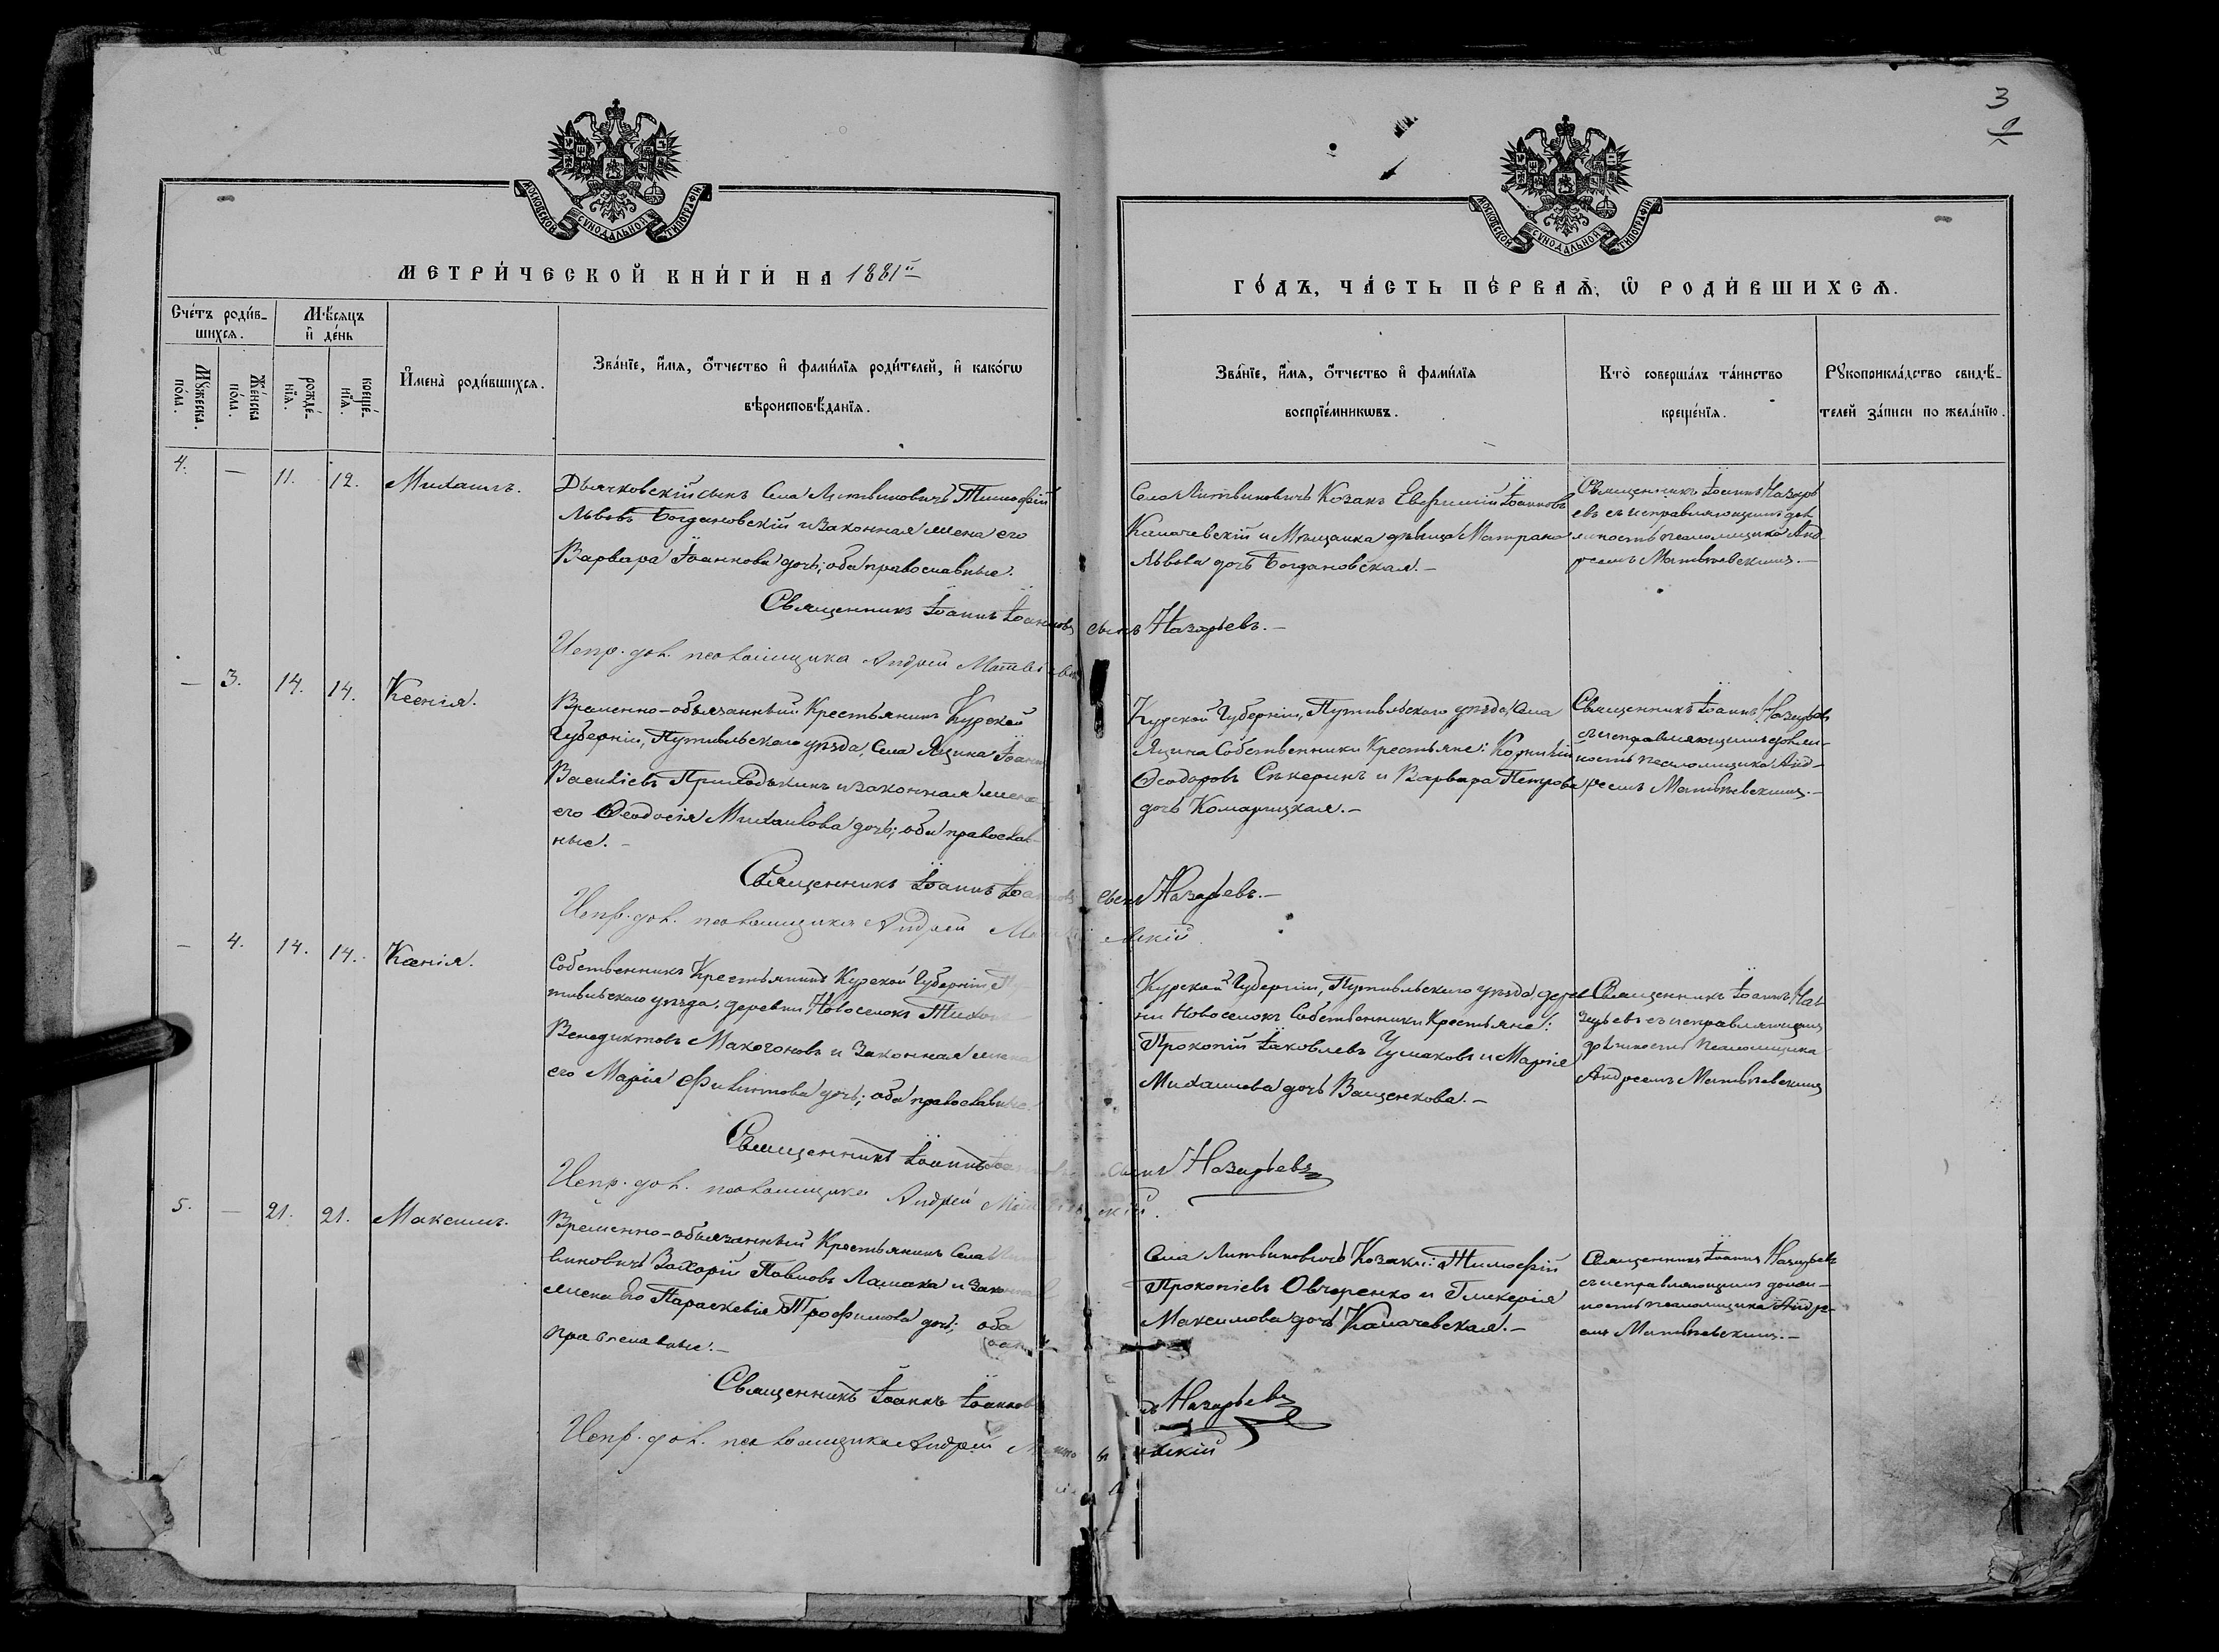 3
9
МОСКОВСКОЙ СУНОДАЛЬНОЙ ТИПОГРАФІИ
МОСКОВСКОЙ СУНОДАЛЬНОЙ ТИПОГРАФІИ
МЕТРИ́ЧЕСКОЙ КНИ́ГИ НА 1881й
ГО́ДЪ, ЧА́СТЬ ПЕ́РВАѦ, Ѿ РОДИ́ВШИХСѦ.
Сче́тъ роди́в-
шихсѧ.
Мѣ́сяцъ
и҆ де́нь
Мꙋ́жеска
по́ла.
Же́нска
по́ла.
рожде́-
нїѧ.
креще́-
нїѧ.
И҆мена̀ роди́вшихсѧ.
Зва́нїе, и҆́мѧ, ѻ҆́тчество и҆ фами́лїѧ роди́телей, и҆ како́гѡ
вѣроисповѣ́данїѧ.
Зва́нїе, и҆́мѧ, ѻ҆́тчество и҆ фами́лїѧ
воспрїе́мникѡвъ.
Кто̀ соверша́лъ та́инство
креще́нїѧ.
Рꙋкоприкла́дство свидѣ́-
телей за́писи по жела́нїю.
4. — 11. 12. Михаилъ.
Дьячковскій сынъ Села Литвиновичъ Тимофей
Львовъ Богдановскій и законная жена его
Варвара Іоаннова дочь; оба православные.
Села Литвиновичъ Козакъ Евфимій Іоанновъ
Капачевскій и Мѣщанка дѣвица Матрона
Львова дочь Богдановская.—
Священникъ Іоаннъ Назарь
евъ съ исправляющимъ дол
жность псаломщика Анд
реемъ Матвѣевскимъ.—
Священникъ Іоаннъ Іоанновъ сынъ Назарьевъ.—
Испр. дол. псаломщика Андрей Матвѣевскій
— 3. 14. 14. Ксенія.
Временно-обязанный Крестьянинъ Курской
Губерніи, Путивльскаго уѣзда, Села Яцина Іоаннъ
Васильевъ Приходькинъ и законная жена
его Ѳеодосія Михаилова дочь; оба православ-
ные.—
Курской Губерніи, Путивльскаго уѣзда, Села
Яцина Собственники Крестьяне: Корнилій
Ѳеодоровъ Секеринъ и Варвара Петрова
дочь Комарицкая.—
Священникъ Іоаннъ Назарьевъ
съ исправляющимъ долж-
ность псаломщика Анд-
реемъ Матвѣевскимъ.—
Священникъ Іоаннъ Іоанновъ сынъ Назарьевъ.—
Испр. дол. псаломщика Андрей Матвѣевскій.
— 4. 14. 14. Ксенія.
Собственникъ Крестьянинъ Курской Губерніи Пу
тивльскаго уѣзда, деревни Новоселокъ Тихонъ
Венедиктовъ Макогоновъ и Законная жена
его Марія Филиппова дочь; оба православные.
Курской Губерніи, Путивльскаго уѣзда дерев
ни Новоселокъ Собственники Крестьяне:
Прокопій Іаковлевъ Чумаковъ и Марія
Михаилова дочь Ващенкова.—
Священникъ Іоаннъ На-
зарьевъ съ исправляющимъ
должность Псаломщика
Андреемъ Матвѣевскимъ
Священникъ Іоаннъ Іоанновъ сынъ Назарьевъ
Испр. дол. псаломщика Андрей Матвѣевскій.
5. — 21. 21. Максимъ.
Временно-обязанный Крестьянинъ Села Лит
виновичъ Захарій Павловъ Ламака и Законная
жена его Параскевія Трофимова дочь; оба
православные.—
Села Литвиновичъ Козаки: Тимофей
Прокопіевъ Овчаренко и Гликерія
Максимова дочь Капачевская.—
Священникъ Іоаннъ Назарьевъ
съ исправляющимъ долж-
ность псаломщика Андре-
емъ Матвѣевскимъ.—
Священникъ Іоаннъ Іоанновъ Назарьевъ
Испр. дол. псаломщика Андрей Матвѣевскій